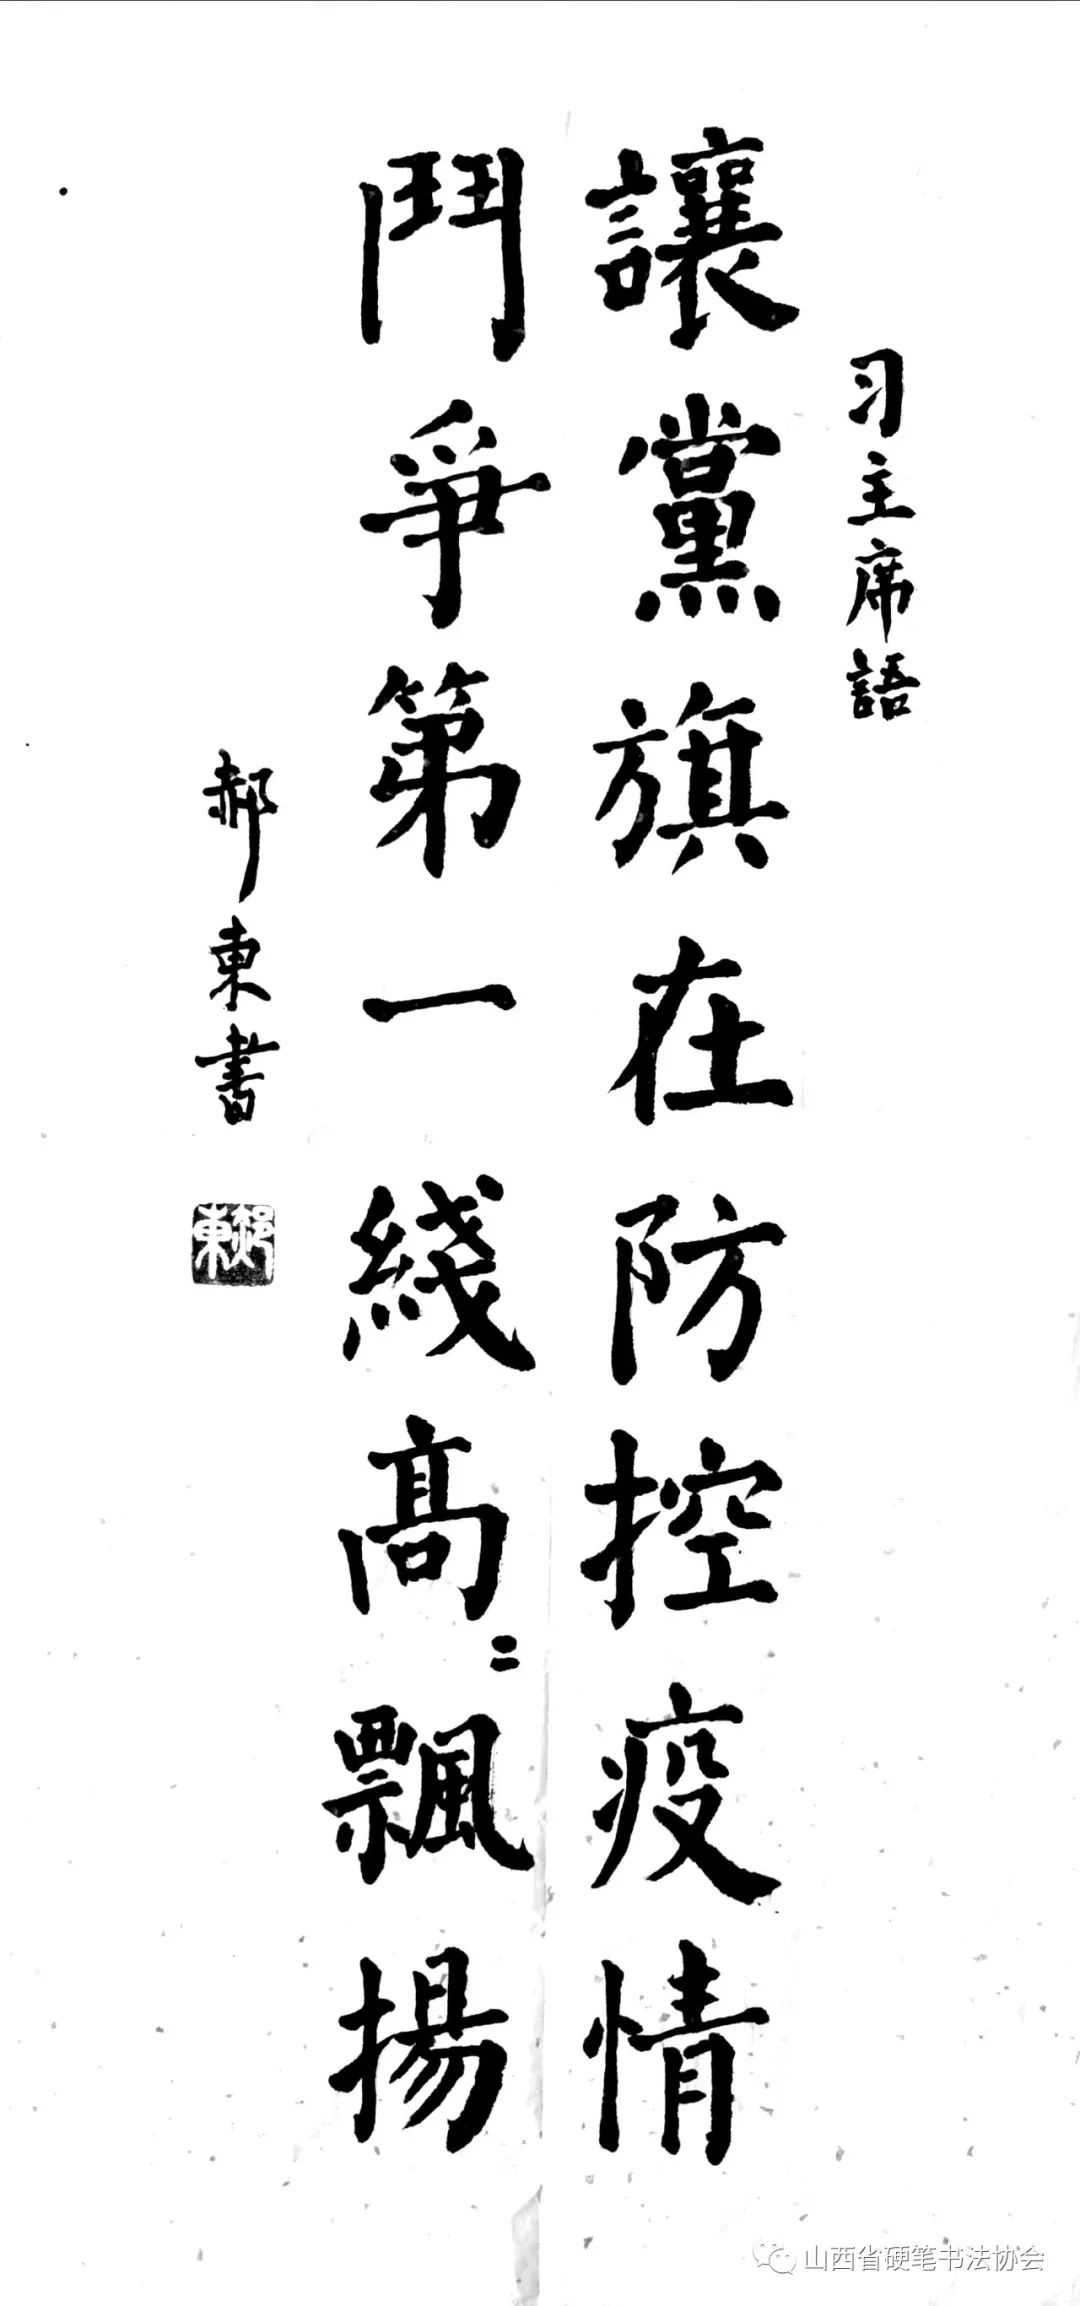 习主席語
讓黨旗在防控疫情
鬥爭第一綫髙〻飄揚
郝東書
郝東
山西省硬笔书法协会